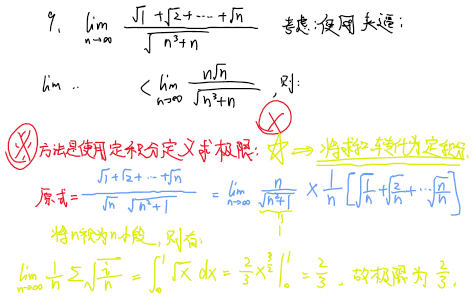 9. lim n→∞ (√1+√2+⋯+√n)/√(n³+n) 考虑:使用夹逼:
lim .. < lim n→∞ n√n/√(n³+n) ,则:
※ 方法是使用定积分定义求极限: ☆ ⇒ 将求和转化为定积分
原式= (√1+√2+⋯+√n)/(√n √(n²+1)) = lim n→∞ n/√(n²+1) × 1/n [√(1/n)+√(2/n)+⋯√(n/n)]
1
将n视为n小段,则有:
lim n→∞ 1/n Σ √(i/n) = ∫₀¹ √x dx = 2/3 x^(3/2) |₀¹ = 2/3 , 故极限为 2/3.